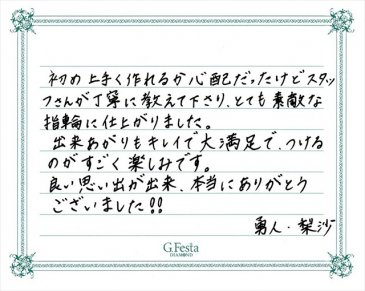 初め上手く作れるか心配だったけどスタッ
フさんが丁寧に教えて下さり、とても素敵な
指輪に仕上がりました。
出来あがりもキレイで大満足で、つける
のがすごく楽しみです。
良い思い出が出来、本当にありがとう
ございました!!
勇人・梨沙
G.Festa
DIAMOND